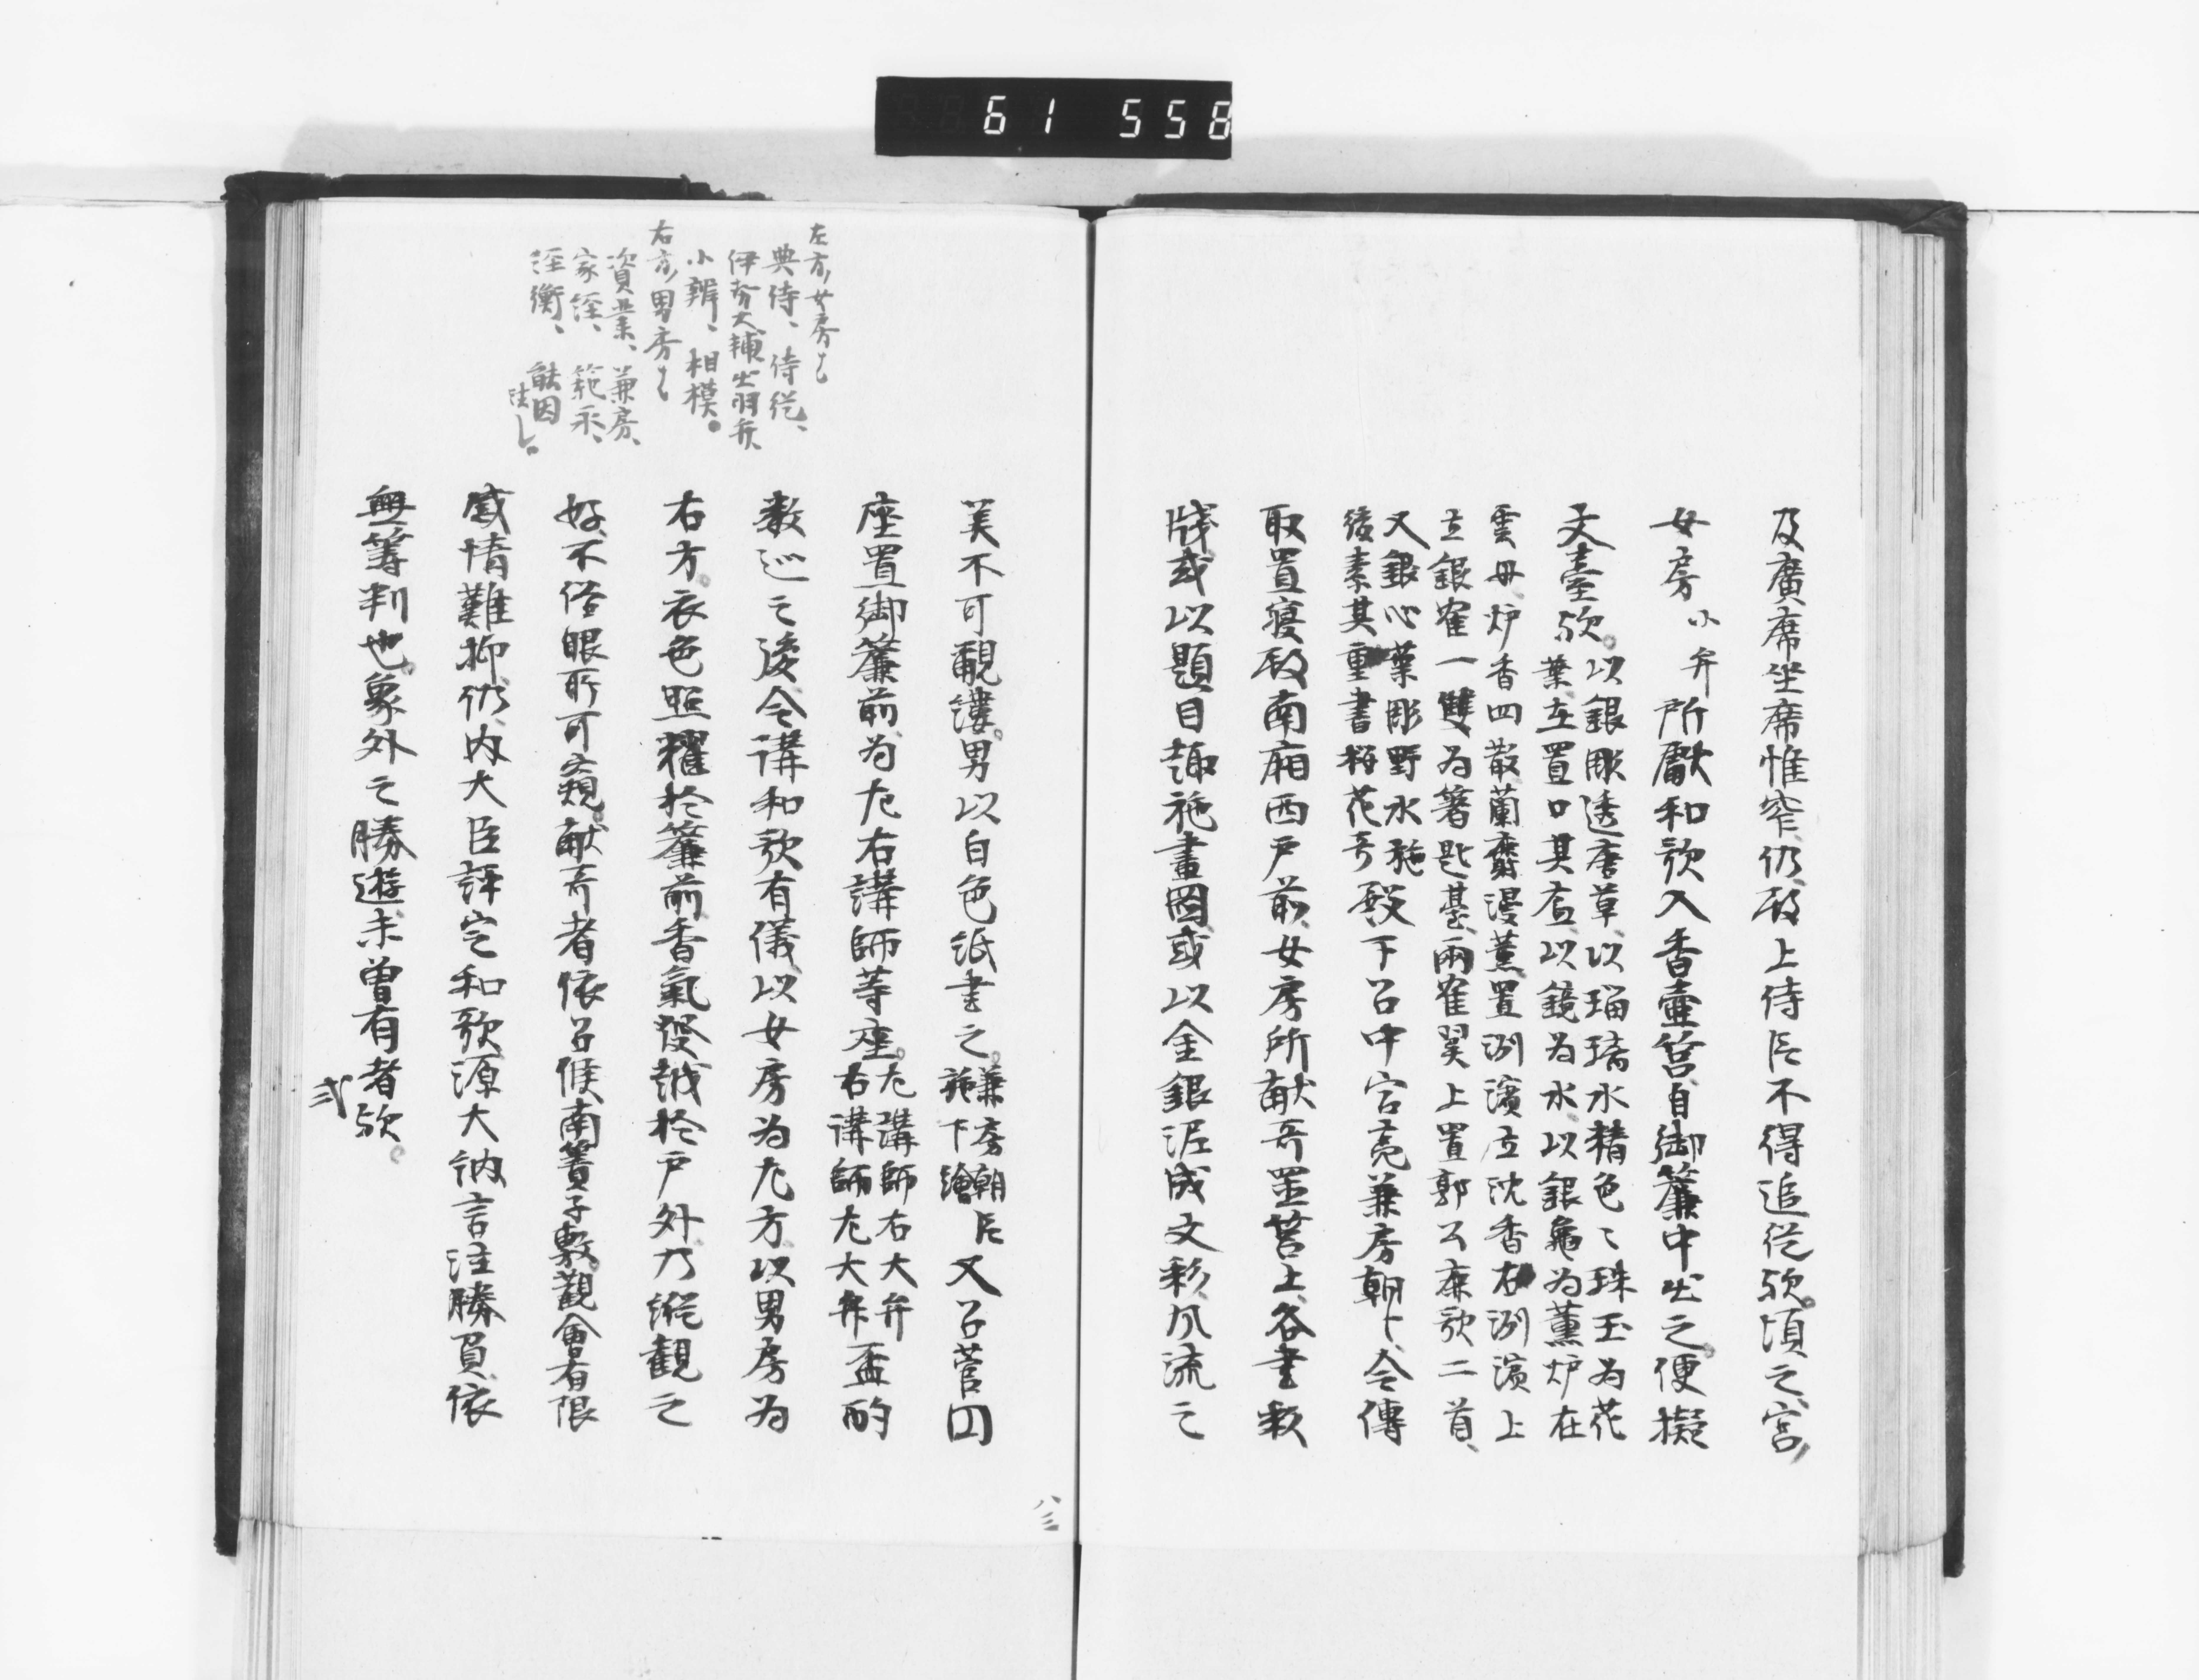 61 558
及廣席坐席惟窄仍殿上侍臣不得追従欤頃之宮
女房小弁所獻和歌入香壷筥自御簾中出之便擬
天臺欤以銀彫透唐草以瑠璃水精色々珠玉為花
葉立置口其 以鏡為水以銀龜為薫炉在
雲母炉香四散蘭麝漫薫置洲濱立沈香 洲濱上
立銀寉一雙為箸匙臺兩寉翼上置郭公 歌二首
又銀心葉彫野水
後素其 書 花哥殿下召中宮亮兼房朝ヽ令傳
取置寝殿南廂西戸前女房所献哥置筥上各書数
牋或以題目趣施畫圖或以金銀泥成文彩凡流之
美不可覼縷男以白色紙書之兼房朝臣施下繪又召菅円
座置御簾前為左右講師等座左講師右大弁右講師左大弁盃酌
数巡之後令講和歌有儀以女房為左方以男房為
右方衣色照耀於簾前香氣發越於戸外乃縦観之
好不俗眼所可窺献哥者依召候南簀子敷觀會有限
感情難抑仍内大臣評定和歌源大納言注勝負依
無等判也象外之勝遊未曾有者欤
弐
左方女房也
典侍、侍従、
伊勢大輔出羽弁
小辨、相模。
右方男房也
資業、兼房、
家経、範永、
経衡、能因
法し。
八三